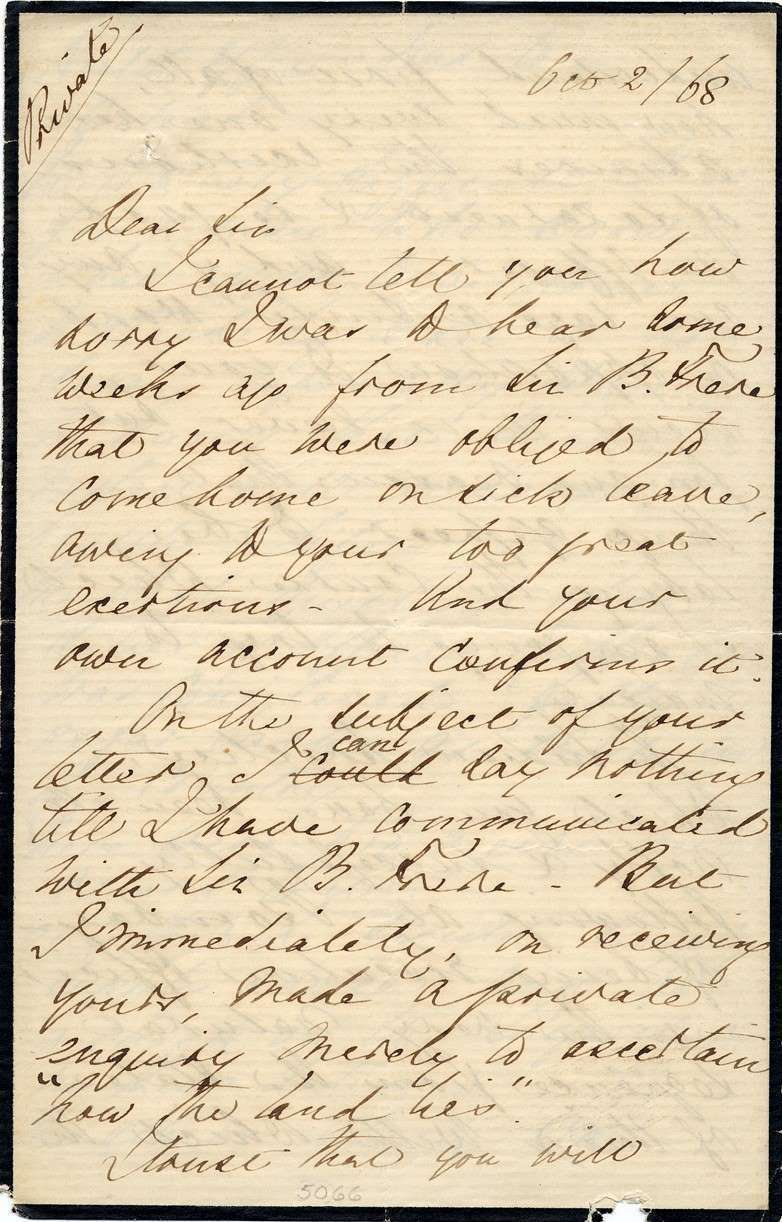 Private
Oct 2/68
Dear Sir
I cannot tell you how
sorry I was to hear some
weeks ago from Sir B. Frere
that you were obliged to
come home on sick leave,
owing to your too great
exertions - And your
own account confirms it.
On the subject of your
letter I could can say nothing
till I have communicated
with Sir B. Frere - But
I immediately, on receiving
yours, made a private
enquiry merely to ascertain
"how the land lies."
I trust that you will
5066